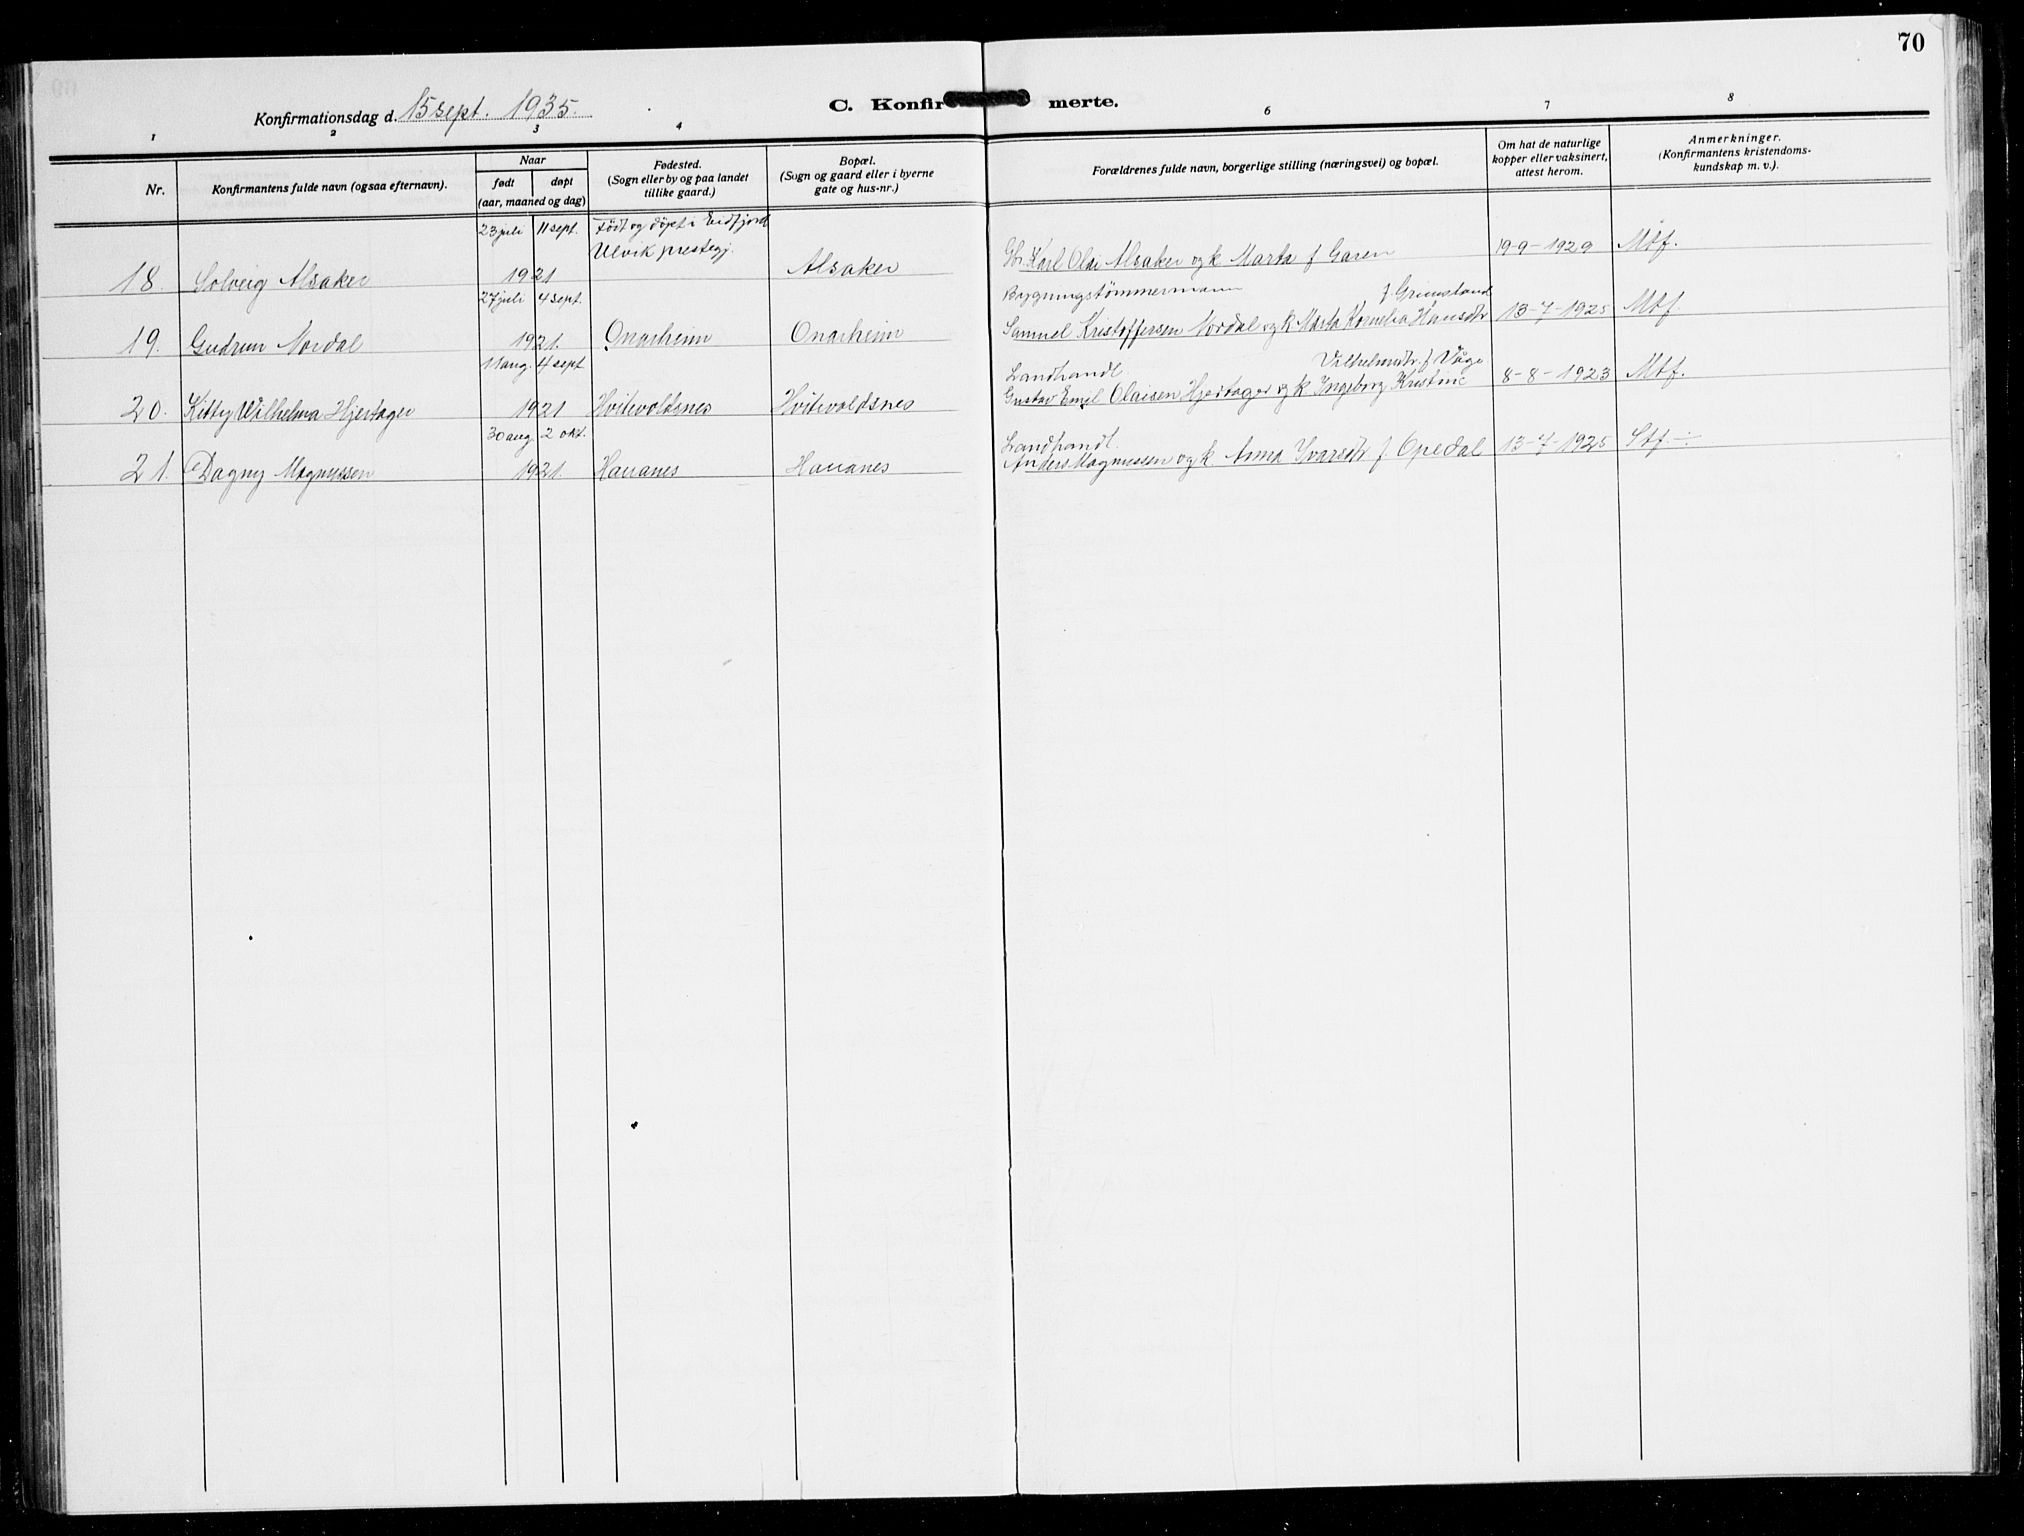 70
Konfirmationsdag d. 15 sept. 1935.
C. Konfirmerte.
1 2 3 4 6 7 8
Nr.
Konfirmantens fulde navn (ogsaa efternavn).
Naar
født døpt
(aar, maaned og dag)
Fødested.
(Sogn eller by og paa landet
tillike gaard.)
Bopæl.
(Sogn og gaard eller i byerne
gate og hus-nr.)
Forældrenes fulde navn, borgerlige stilling (næringsvei) og bopæl.
Om hat de naturlige
kopper eller vaksinert,
attest herom.
Anmerkninger.
(Konfirmantens kristendoms-
kundskap m. v.).
23 juli 11 sept. Født og døpt i Eidfjord
Ulvik prestegj.
18. Solveig Alsaker 1921 Alsaker Gbr. Karl Olai Alsaker og k Marta f Garen 19-9-1929 Mtf.
27 juli 4 sept. Bygningstömmermann f Grimsland
19. Gudrun Nordal 1921. Onarheim Onarheim Samuel Kristoffersen Nordal og k Marta Kornelia Hansdtr 13-7-1925 Mtf
11 aug. 4 sept Landhandl. Vilhelmsdtr. f Våge
20. Kitty Wilhelma Hjertager 1921 Hvitevoldsnes Hvitevoldsnes Gustav Emil Olaisen Hjertager og k Ingeborg Kristine 8-8-1923 Mtf.
30 aug. 2 okt. Landhandl.
21. Dagny Magnussen 1921. Hauanes Hauanes Anders Magnussen og k Anna Ivarsdtr f Opedal 13-7-1925 Stf ÷